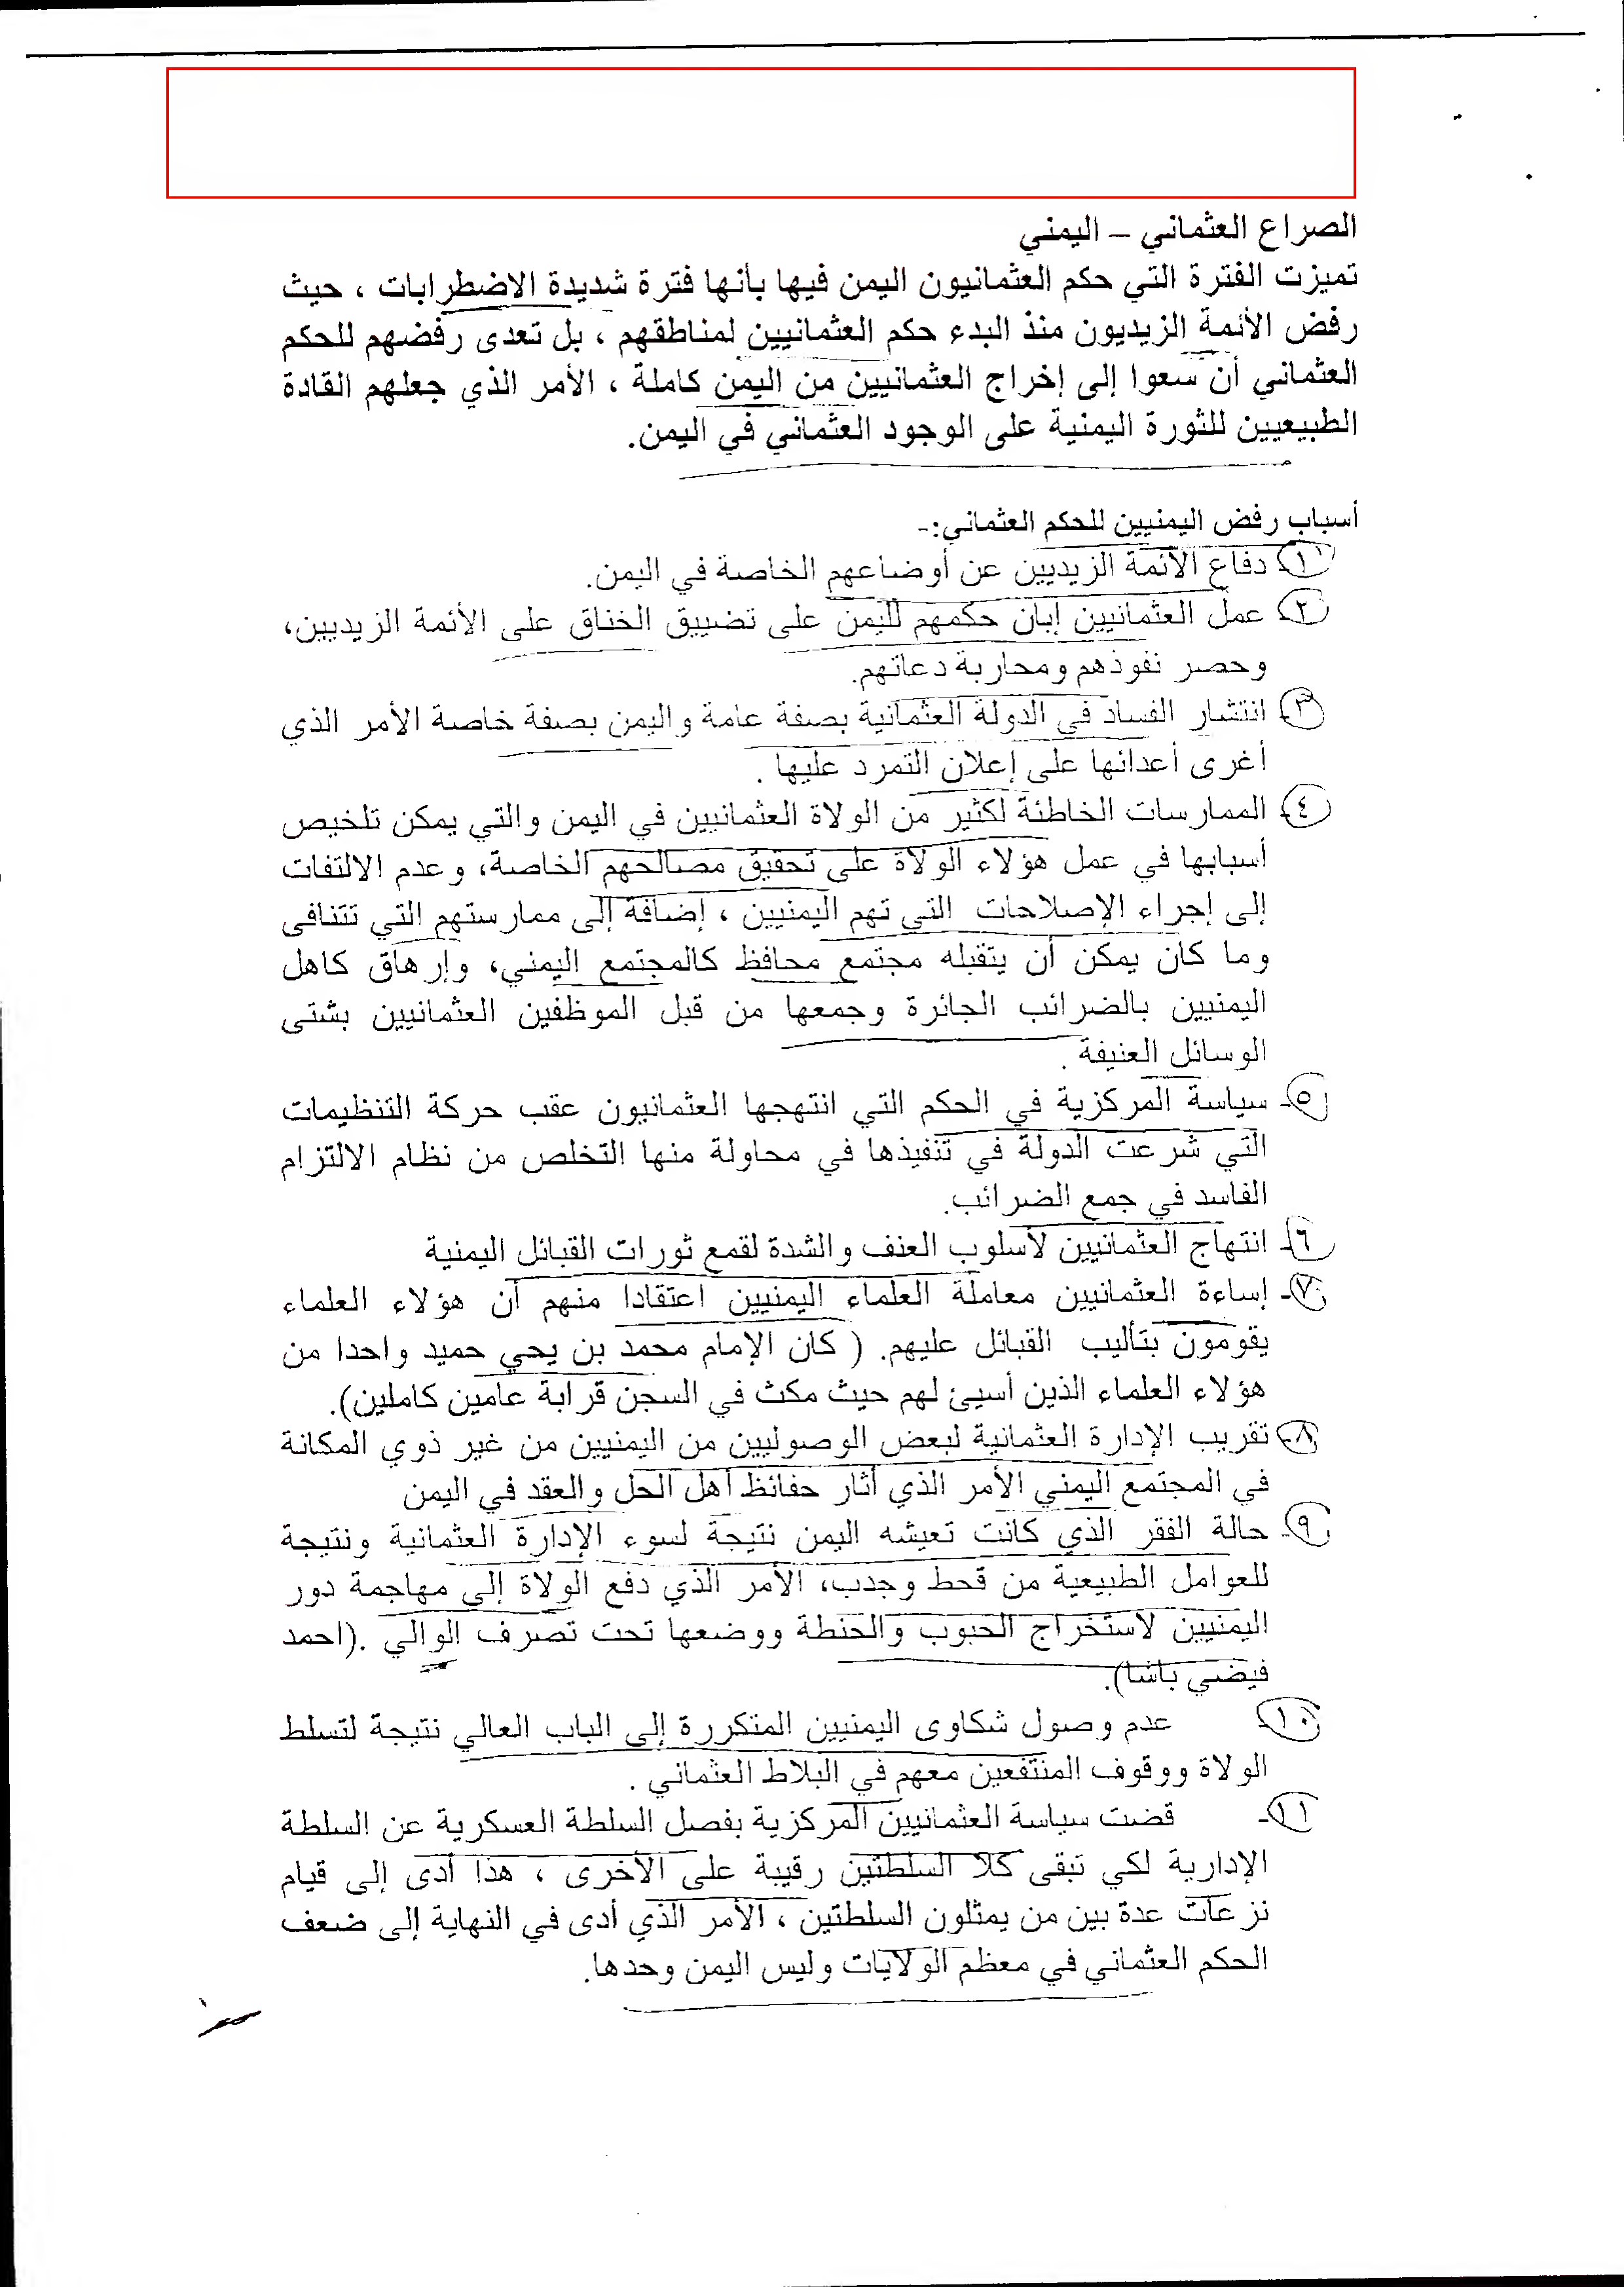 الصراع العثماني – اليمني
تميزت الفترة التي حكم العثمانيون اليمن فيها بأنها فترة شديدة الاضطرابات ، حيث
رفض الأئمة الزيديون منذ البدء حكم العثمانيين لمناطقهم ، بل تعدى رفضهم للحكم
العثماني أن سعوا إلى إخراج العثمانيين من اليمن كاملة ، الأمر الذي جعلهم القادة
الطبيعيين للثورة اليمنية على الوجود العثماني في اليمن.
أسباب رفض اليمنيين للحكم العثماني:-
١- دفاع الأئمة الزيديين عن أوضاعهم الخاصة في اليمن.
٢- عمل العثمانيين إبان حكمهم لليمن على تضييق الخناق على الأئمة الزيديين،
وحصر نفوذهم ومحاربة دعاتهم.
٣- انتشار الفساد في الدولة العثمانية بصفة عامة واليمن بصفة خاصة الأمر الذي
أغرى أعدائها على إعلان التمرد عليها .
٤- الممارسات الخاطئة لكثير من الولاة العثمانيين في اليمن والتي يمكن تلخيص
أسبابها في عمل هؤلاء الولاة على تحقيق مصالحهم الخاصة، وعدم الالتفات
إلى إجراء الإصلاحات التي تهم اليمنيين ، إضافة إلى ممارستهم التي تتنافى
وما كان يمكن أن يتقبله مجتمع محافظ كالمجتمع اليمني، وإرهاق كاهل
اليمنيين بالضرائب الجائرة وجمعها من قبل الموظفين العثمانيين بشتى
الوسائل العنيفة .
٥- سياسة المركزية في الحكم التي انتهجها العثمانيون عقب حركة التنظيمات
التي شرعت الدولة في تنفيذها في محاولة منها التخلص من نظام الالتزام
الفاسد في جمع الضرائب.
٦- انتهاج العثمانيين لأسلوب العنف والشدة لقمع ثورات القبائل اليمنية
٧- إساءة العثمانيين معاملة العلماء اليمنيين اعتقادا منهم أن هؤلاء العلماء
يقومون بتأليب القبائل عليهم. ( كان الإمام محمد بن يحي حميد واحدا من
هؤلاء العلماء الذين أسيئ لهم حيث مكث في السجن قرابة عامين كاملين).
٨- تقريب الإدارة العثمانية لبعض الوصوليين من اليمنيين من غير ذوي المكانة
في المجتمع اليمني الأمر الذي أثار حفائظ أهل الحل والعقد في اليمن
٩- حالة الفقر الذي كانت تعيشه اليمن نتيجة لسوء الإدارة العثمانية ونتيجة
للعوامل الطبيعية من قحط وجدب، الأمر الذي دفع الولاة إلى مهاجمة دور
اليمنيين لاستخراج الحبوب والحنطة ووضعها تحت تصرف الوالي .(احمد
فيضي باشا).
١٠- عدم وصول شكاوى اليمنيين المتكررة إلى الباب العالي نتيجة لتسلط
الولاة ووقوف المنتفعين معهم في البلاط العثماني .
١١- قضت سياسة العثمانيين المركزية بفصل السلطة العسكرية عن السلطة
الإدارية لكي تبقى كلا السلطتين رقيبة على الأخرى ، هذا أدى إلى قيام
نزعات عدة بين من يمثلون السلطتين ، الأمر الذي أدى في النهاية إلى ضعف
الحكم العثماني في معظم الولايات وليس اليمن وحدها.